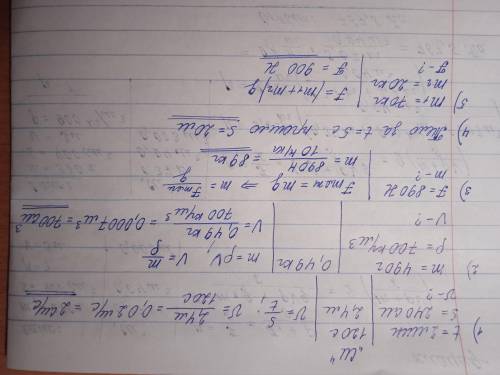 "СИ"
1) t = 2 мин | 120 с | v = s/t; v = 2,4 м / 120 с = 0,02 м/с = 2 см/с
s = 240 см | 2,4 м
v - ?
2) m = 490 г | 0,49 кг | m = ρV; V = m/ρ
ρ = 700 кг/м³ | V = 0,49 кг / 700 кг/м³ = 0,0007 м³ = 700 см³
V - ?
3) F = 890 Н | Fтяж = mg ⇒ m = Fтяж / g
m - ? | m = 890 Н / 10 Н/кг = 89 кг
4) Тело за t = 5с прошло s = 20 м
5) m₁ = 70 кг | F = (m₁ + m₂) g
m₂ = 20 кг | F = 900 Н
F - ?